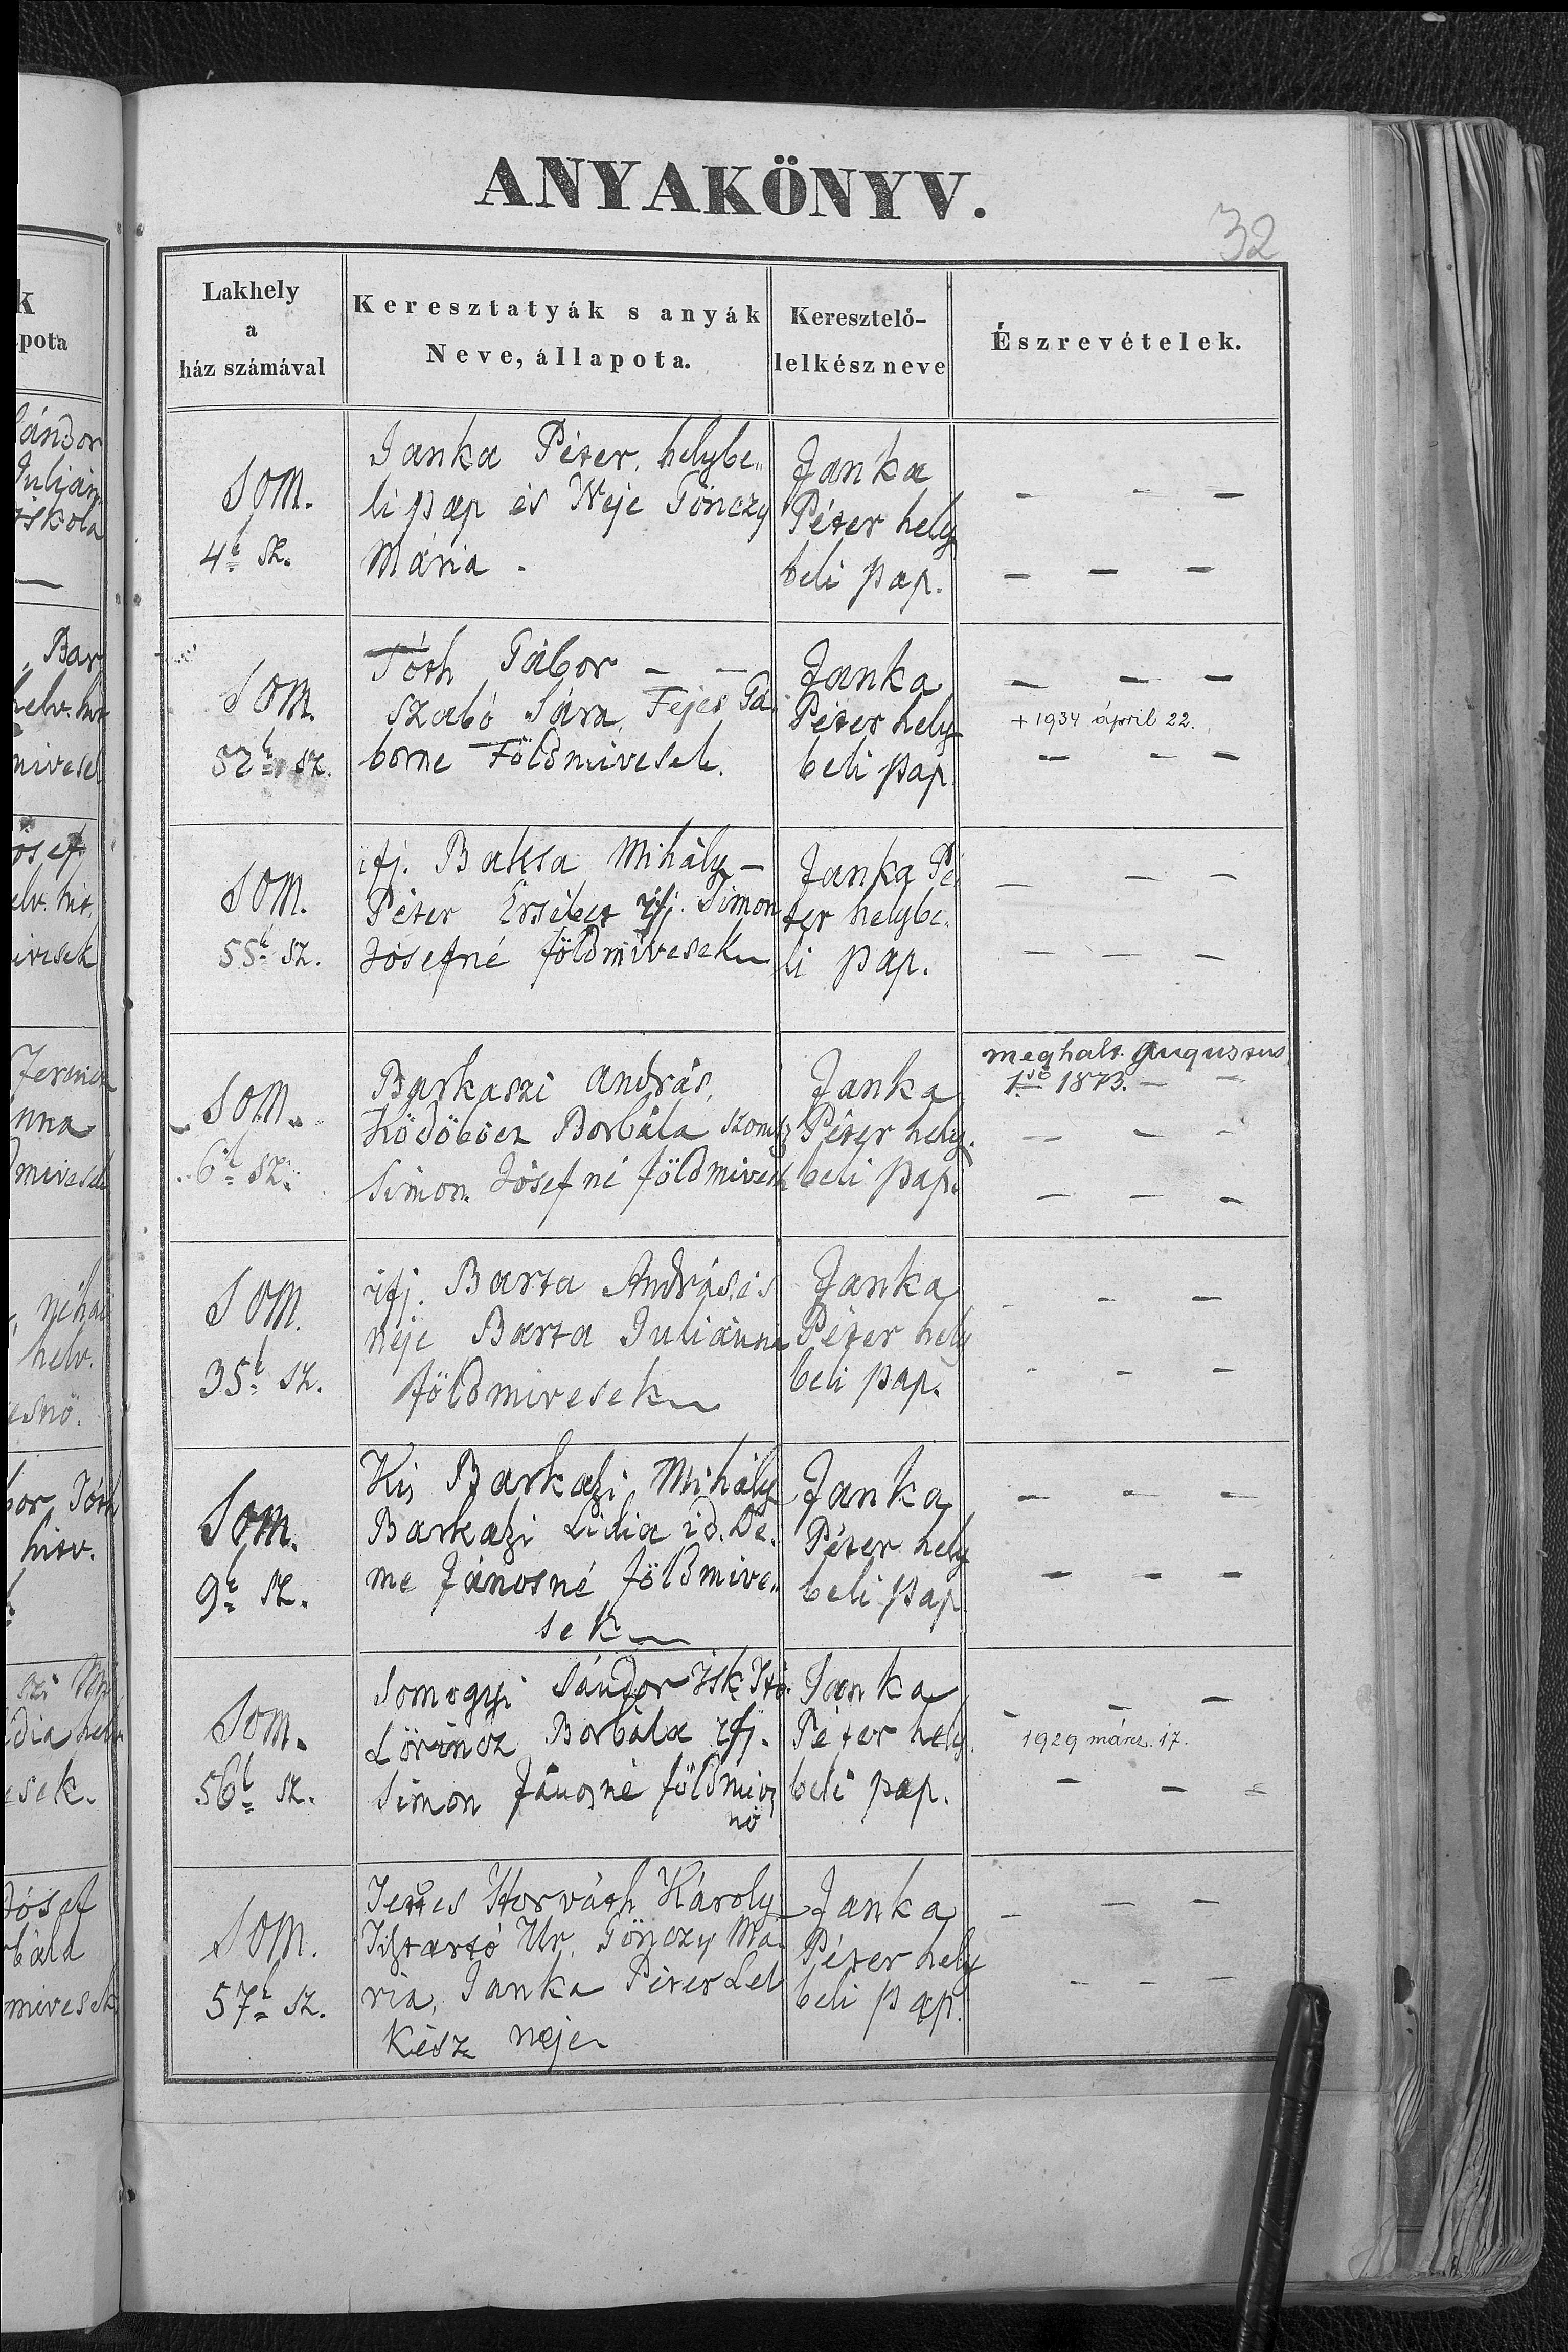 ANYAKÖNYV.
32
Lakhely
a
ház számával
Keresztatyák s anyák
Neve, állapota.
Keresztelő-
lelkész neve
Észrevételek.
Som.
4k sz.
Janka Péter, helybe„
li pap és Neje Gönczy
Mária.
Janka
Péter hely
beli pap.
— — —
— — —
Som.
52k sz.
Tóth Gábor — —
Szabó Sára, Fejes Gá„
borne Földmivesek.
Janka
Péter hely
beli pap.
— — —
+ 1934 ápril 22.
— — —
Som.
55k sz.
ifj. Baksa Mihály —
Péter Ersébet ifj. Simon
Jósefné földmivesek
Janka Pé
ter helybe„
li pap.
— — —
— — —
Som.
6k sz.
Barkaszi András,
Ködöböcz Borbála
Simon Jósefné földmivesek
Janka
Péter hely
beli pap.
meghalt Augustus
1ső 1873. — —
— — —
— — —
Som.
35k sz.
ifj. Barta András és
neje Barta Juliánna
földmivesek
Janka
Péter hely
beli pap.
— — —
— — —
Som.
9k sz.
Kis Barkaszi Mihály
Barkaszi Lidia id. De„
me Jánosné földmive„
sek
Janka
Péter hely
beli pap
— — —
— — —
Som.
56k sz.
Somogyi Sándor Isk.
Lörincz Borbála ifj.
Simon Jánosné földmives
nő
Janka
Péter hely
beli pap.
— — —
1929 márc. 17.
— — —
Som.
57k sz.
Horváth Károly
Ur, Gönczy Má„
ria, Janka Péter Lel
kész neje
Janka
Péter hely
beli pap.
— — —
— — —
k
pota
Sándor
Julián
iskola
Bar
helv. hit
mivesek
ósef
elv. hit.
ivesek
Ferencz
nna
mivesek
néhai
helv.
esnő.
bor, Tóth
hitv.
Mi
idia helv
esek.
Jósef
rbála
mivesek